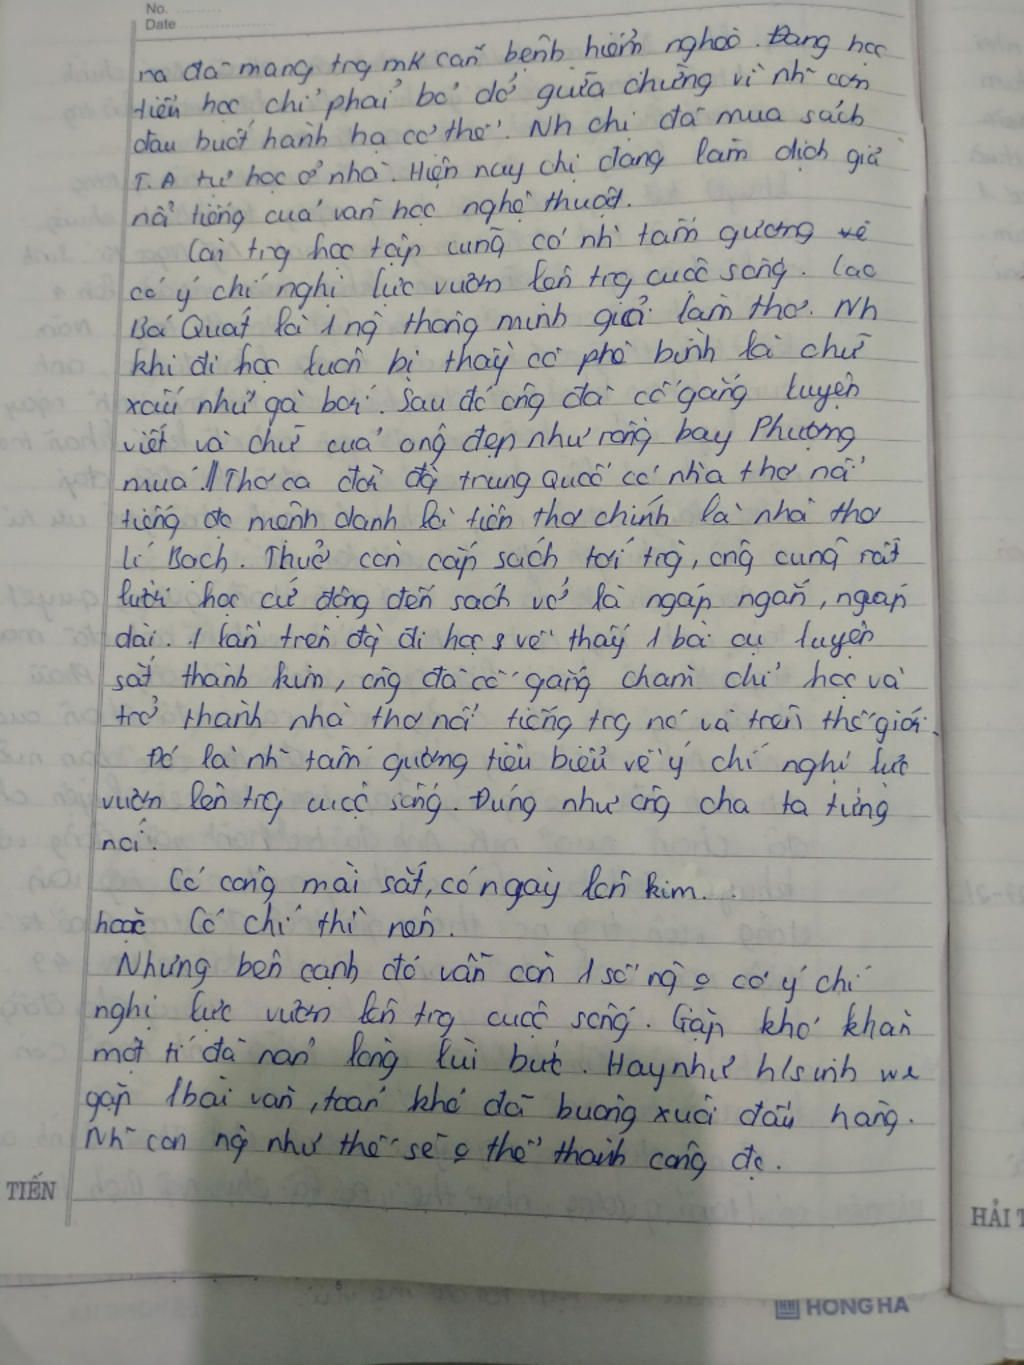 No.
Date
ra đã mang trg mk căn bệnh hiểm nghoò. Đang học
tiểu học chị phải bỏ dở giữa chừng vì nh~ cơn
đau buốt hành hạ cơ thể. Nh chị đã mua sách
T.A tự học ở nhà. Hiện nay chị đang làm dịch giả
nổi tiếng của văn học nghệ thuật.
Còn trg học tập cũng có nh~ tấm gương về
có ý chí nghị lực vươn lên trg cuộc sống. Cao
Bá Quát là 1 ng` thông minh giỏi làm thơ. Nh
khi đi học luôn bị thầy cô phê bình là chữ
xấu như gà bới. Sau đó ông đã cố gắng luyện
viết và chữ của ông đẹp như rồng bay Phượng
múa.// Thơ ca đời đg` trung quốc có nhà thơ nổi
tiếng đc mệnh danh là tiên thơ chính là nhà thơ
Lí Bạch. Thuở còn cắp sách tới trg`, ông cũng rất
lười học cứ động đến sách vở là ngáp ngắn, ngáp
dài. 1 lần trên đg` đi học về thấy 1 bà cụ luyện
sắt thành kim, ông đã cố gắng chăm chỉ học và
trở thành nhà thơ nổi tiếng trg nc và trên thế giới.
Đó là nh~ tấm gương tiêu biểu về ý chí nghị lực
vươn lên trg cuộc sống. Đúng như ông cha ta từng
nói:
Có công mài sắt, có ngày lên kim...
hoặc Có chí thì nên.
Nhưng bên cạnh đó vẫn còn 1 số ng` o có ý chí
nghị lực vươn lên trg cuộc sống. Gặp khó khăn
một tí đã nản lòng lùi bước. Hay như h/sinh
gặp 1 bài văn, toán khó đã buông xuôi đầu hàng.
Nh~ con ng` như thế sẽ o thể thành công đc.
TIẾN
HẢI T
HONG HA